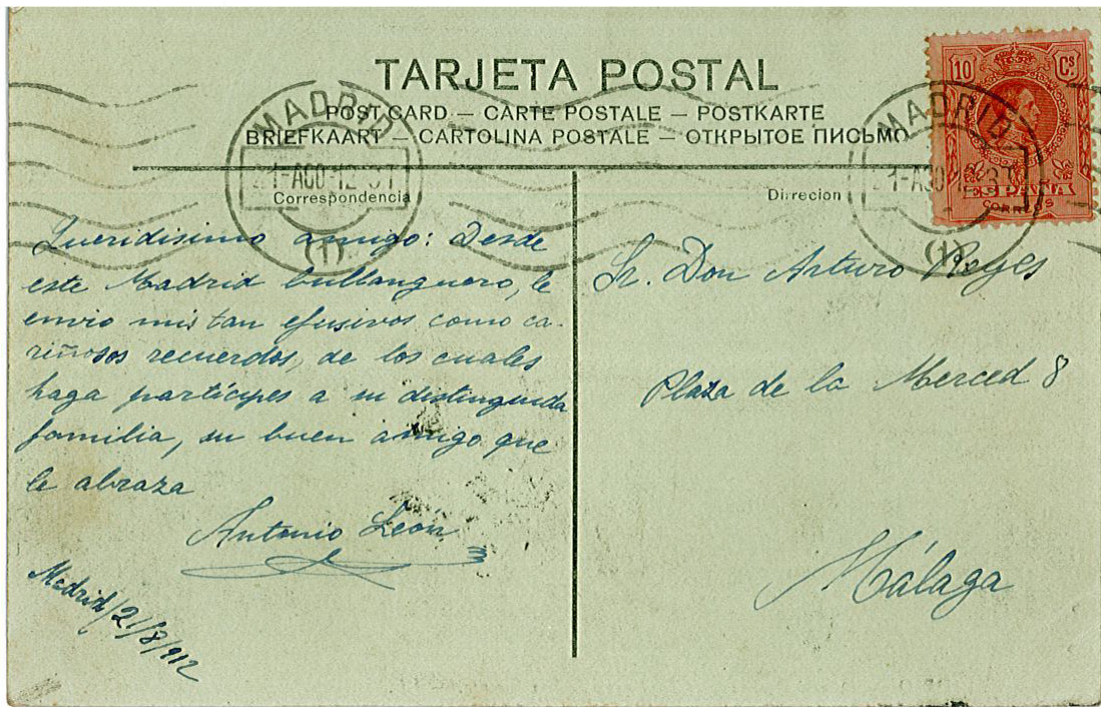 TARJETA POSTAL
POST CARD — CARTE POSTALE — POSTKARTE
BRIEFKAART — CARTOLINA POSTALE — ОТКРЫТОЕ ПИСЬМО
10 Cs
ESPAÑA
CORREOS
MADRID
21-AGO-12
(1)
MADRID
21-AGO-12
(1)
Correspondencia
Queridisimo amigo: Desde
este Madrid bullanguero, le
envio mis tan efusivos como ca-
riñosos recuerdos, de los cuales
haga partícipes a su distinguida
familia, su buen amigo que
le abraza
Antonio León
Madrid/21/8/912
Dirrecion
Sr. Don Arturo Reyes
Plaza de la Merced 8
Málaga